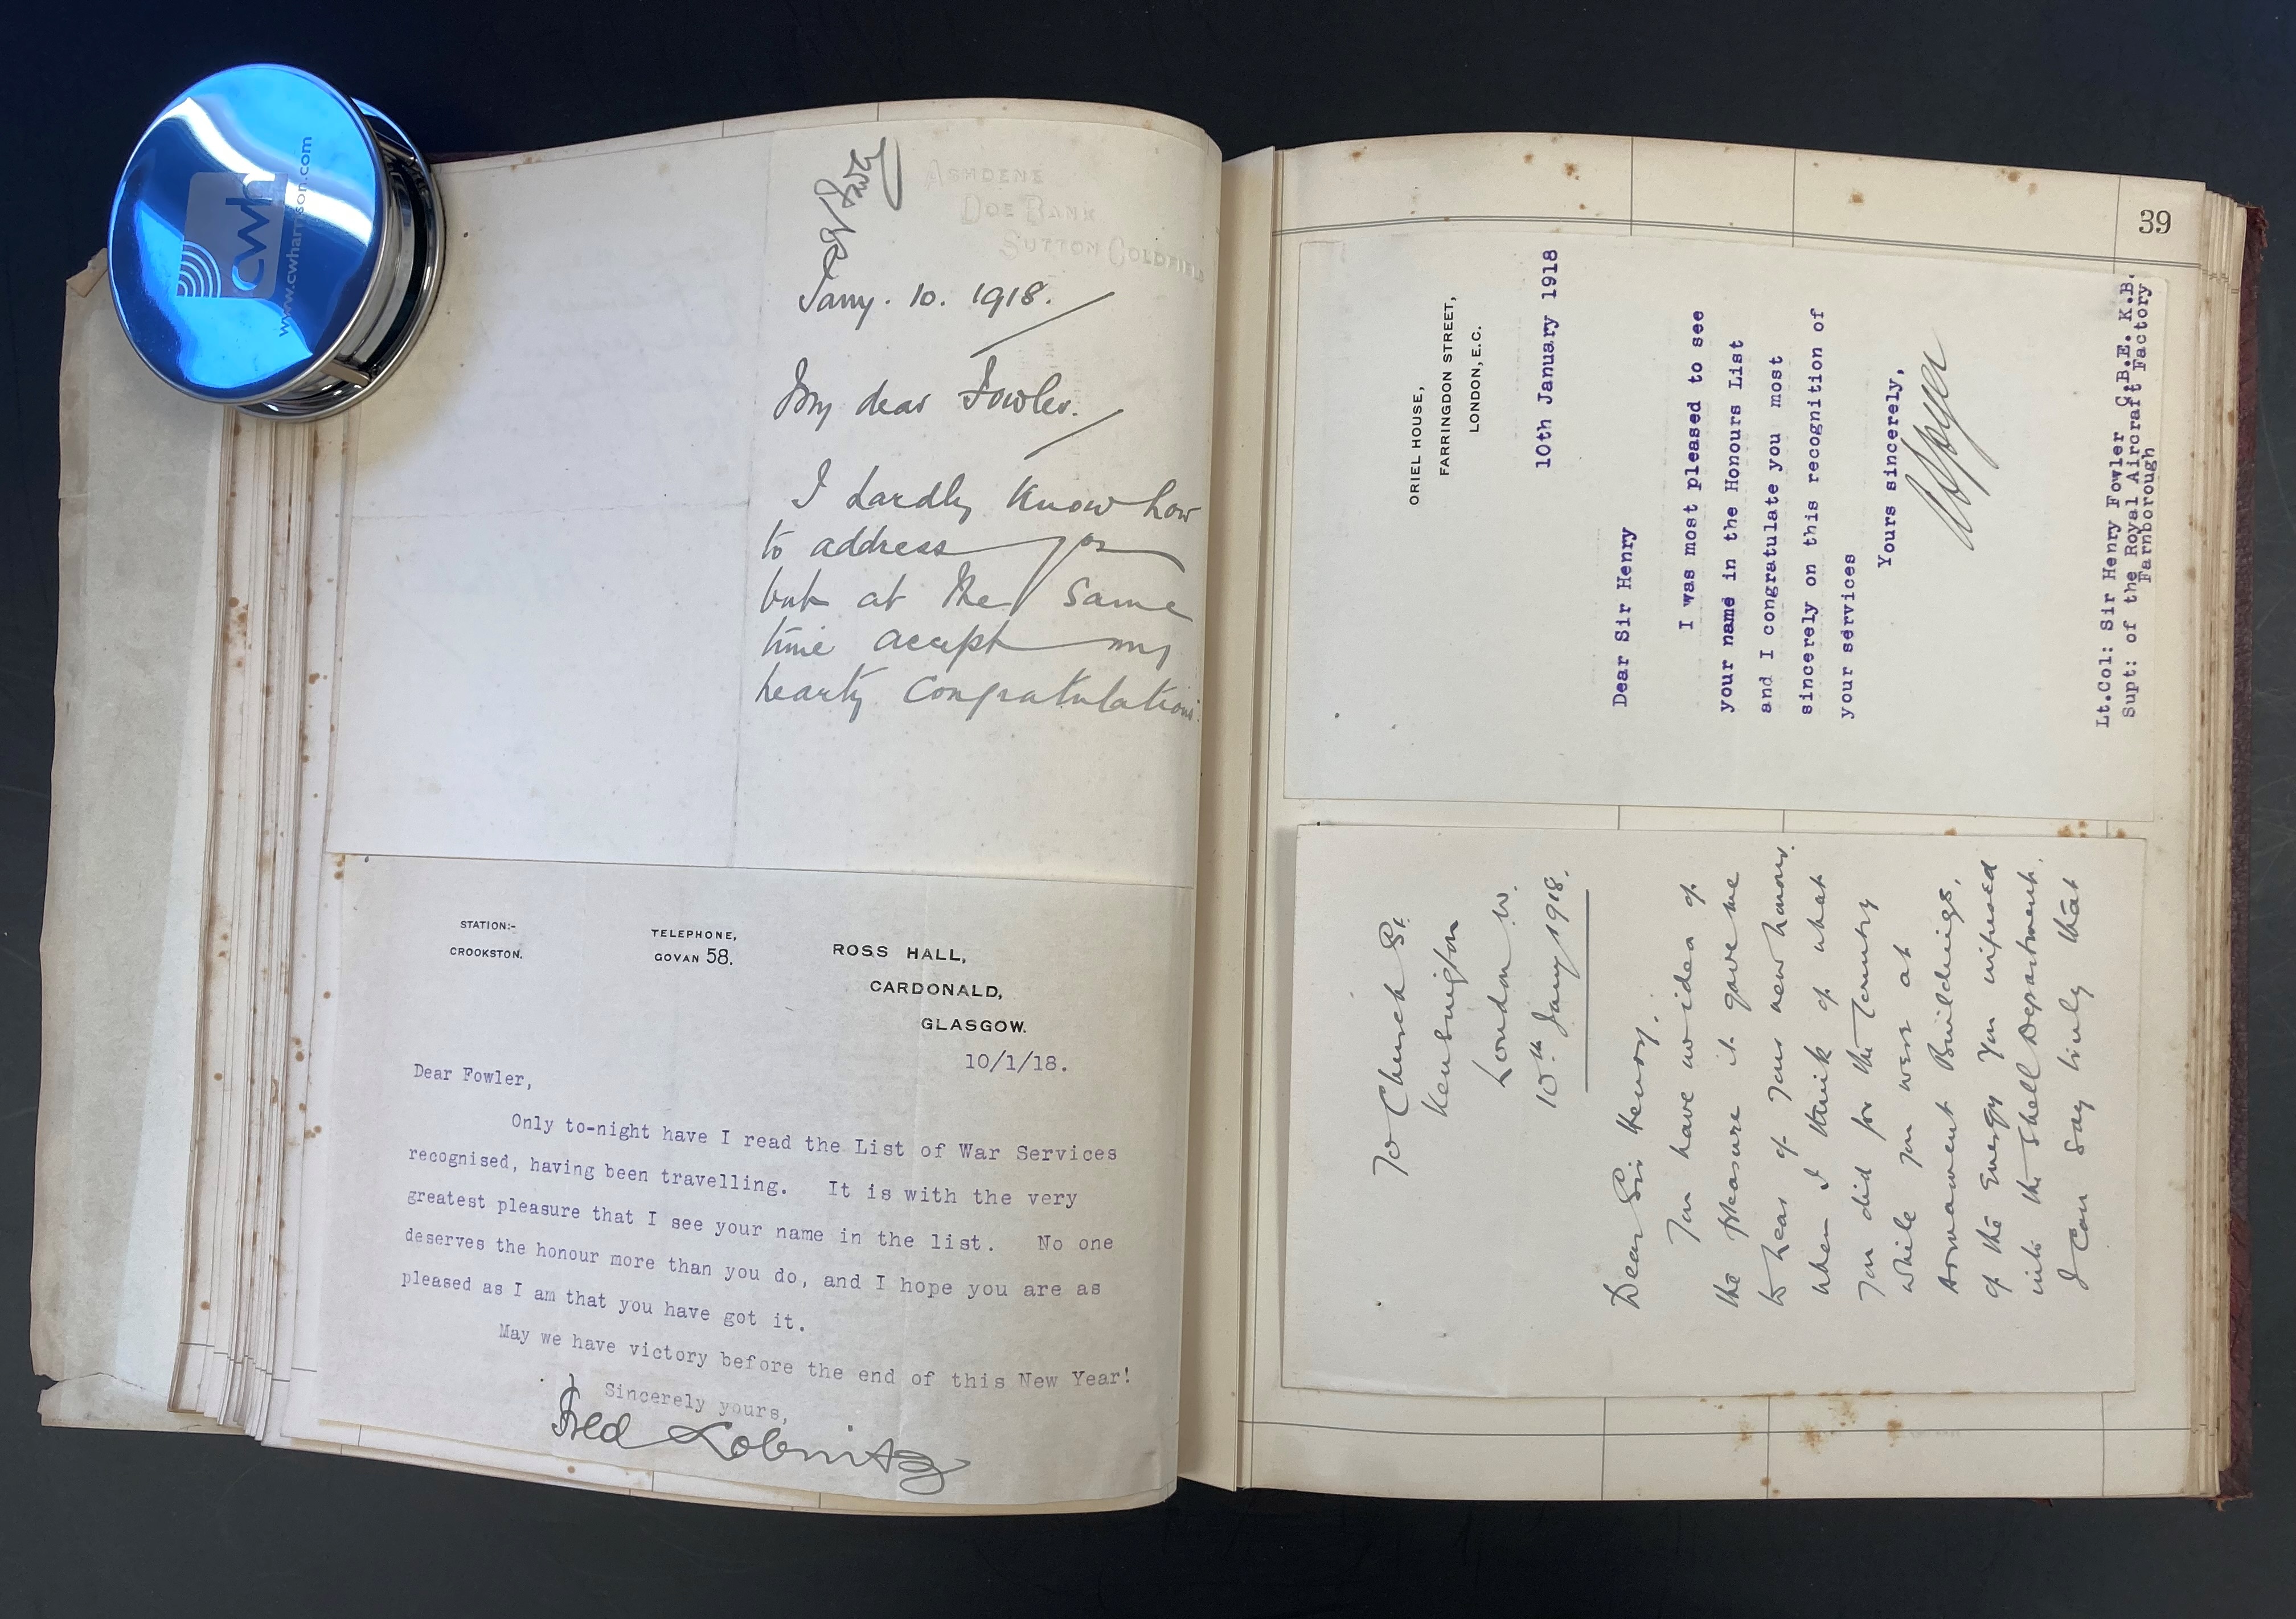 cwh
www.cwharrison.com
ASHDENE
DOE BANK
SUTTON COLDFIELD
Jany. 10. 1918.
My dear Fowler.
I hardly know how
to address you
but at the same
time accept my
hearty congratulations.
STATION:-
CROOKSTON.
TELEPHONE,
GOVAN 58.
ROSS HALL,
CARDONALD,
GLASGOW.
10/1/18.
Dear Fowler,
Only to-night have I read the List of War Services
recognised, having been travelling. It is with the very
greatest pleasure that I see your name in the list. No one
deserves the honour more than you do, and I hope you are as
pleased as I am that you have got it.
May we have victory before the end of this New Year!
Sincerely yours,
Fred Lobnitz
39
ORIEL HOUSE,
FARRINGDON STREET,
LONDON, E.C.
10th January 1918
Dear Sir Henry
I was most pleased to see
your name in the Honours List
and I congratulate you most
sincerely on this recognition of
your services
Yours sincerely,
Lt.Col: Sir Henry Fowler C.B.E. K.B.
Supt: of the Royal Aircraft Factory
Farnborough
70 Church St.
Kensington
London W.
10th Jany 1918.
Dear Sir Henry.
You have no idea of
the pleasure it gave me
to hear of your new honour.
When I think of what
you did for the Country
while you were at
Armament Buildings,
of the Energy you infused
into the Shell Department.
I can say truly that